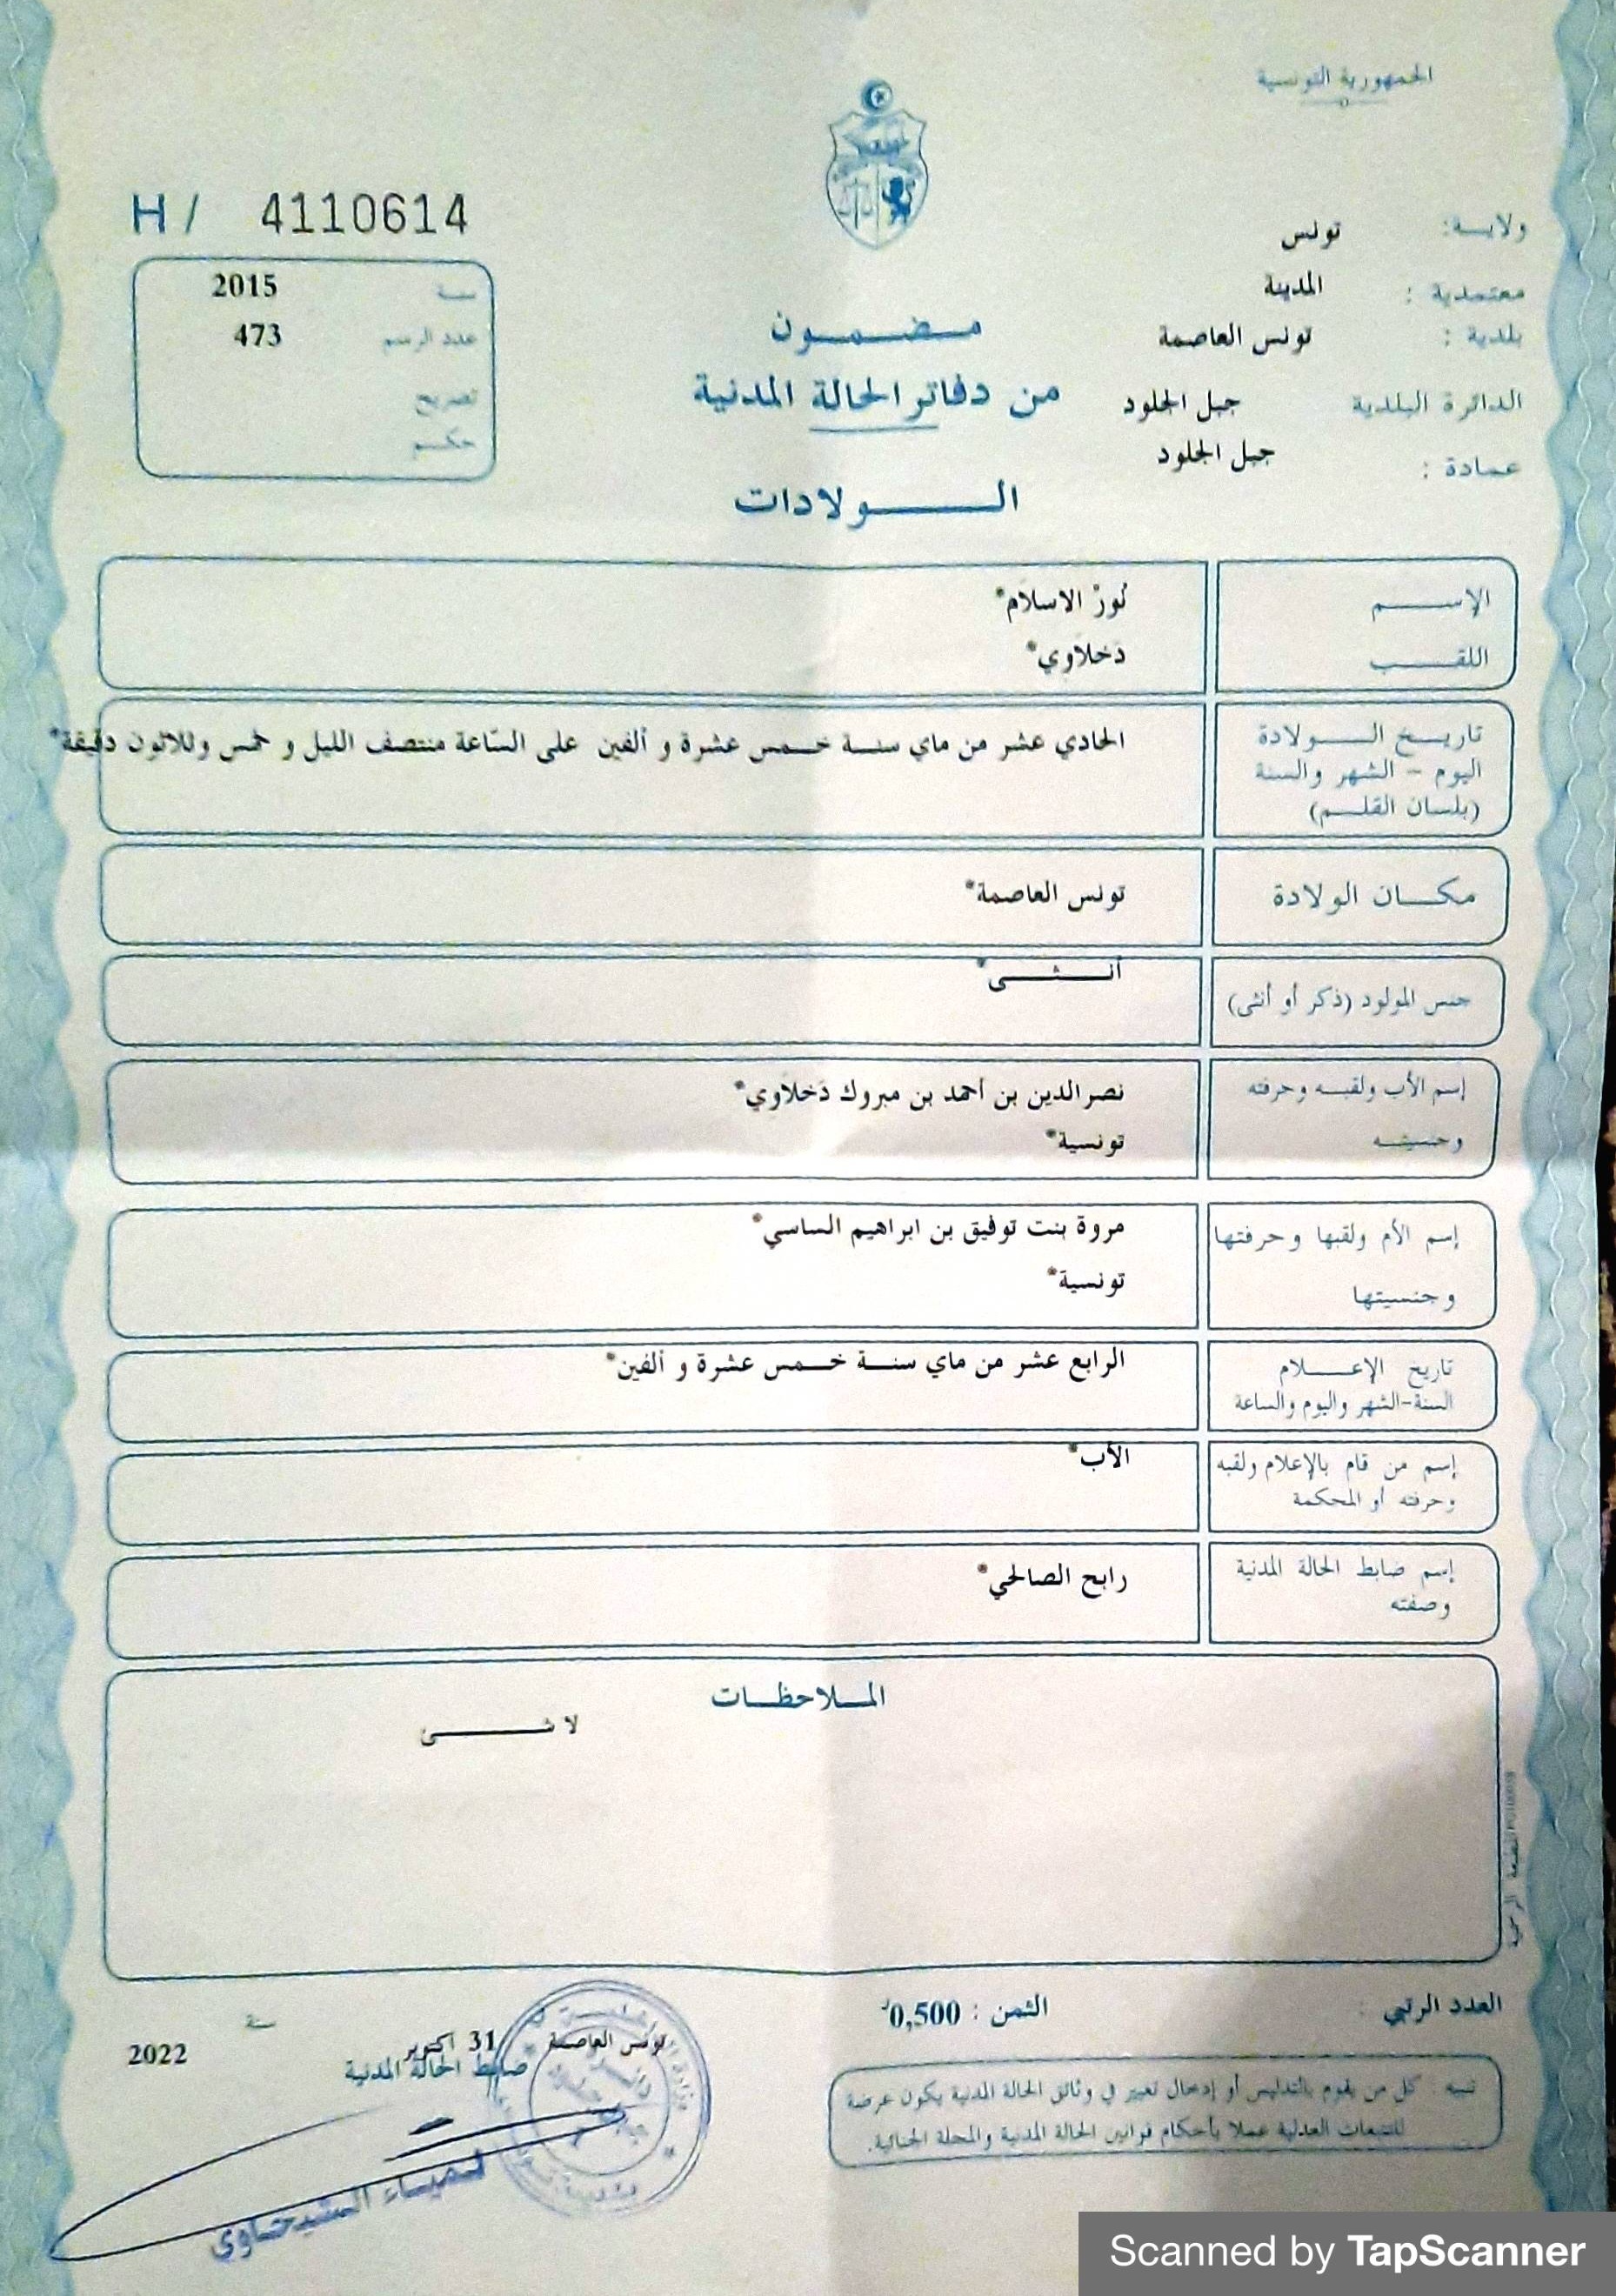 الجمهورية التونسية
H / 4110614
ولايـة: تونس
معتمدية : المدينة
بلدية : تونس العاصمة
الدائرة البلدية جبل الجلود
عمادة : جبل الجلود
سنة 2015
عدد الرسم 473
تصريح
حكم
مضمون
من دفاتر الحالة المدنية
الولادات
الإسم نُورْ الاسلام*
اللقب دخلاوي*
تاريخ الولادة
اليوم - الشهر والسنة
(بلسان القلم)
الحادي عشر من ماي سنة خمس عشرة و ألفين على السّاعة منتصف الليل و خمس وثلاثون دقيقة*
مكان الولادة تونس العاصمة*
جنس المولود (ذكر أو أنثى) أنثى*
إسم الأب ولقبه وحرفته نصرالدين بن أحمد بن مبروك دخلاوي*
وجنسيته تونسية*
إسم الأم ولقبها وحرفتها مروة بنت توفيق بن ابراهيم الساسي*
وجنسيتها تونسية*
تاريخ الإعلام الرابع عشر من ماي سنة خمس عشرة و ألفين*
السنة-الشهر واليوم والساعة
إسم من قام بالإعلام ولقبه الأب*
وحرفته أو المحكمة
إسم ضابط الحالة المدنية رابح الصالحي*
وصفته
الملاحظات
لا شى
المطبعة الرسمية
العدد الرتبي :
الثمن : 0,500د
تونس العاصمة 31 أكتوبر سنة 2022
ضابط الحالة المدنية
لمياء الشيحاوي
تنبيه : كل من يقوم بالتدليس أو إدخال تغيير في وثائق الحالة المدنية يكون عرضة
للتتبعات العدلية عملا بأحكام قوانين الحالة المدنية والمجلة الجنائية.
Scanned by TapScanner